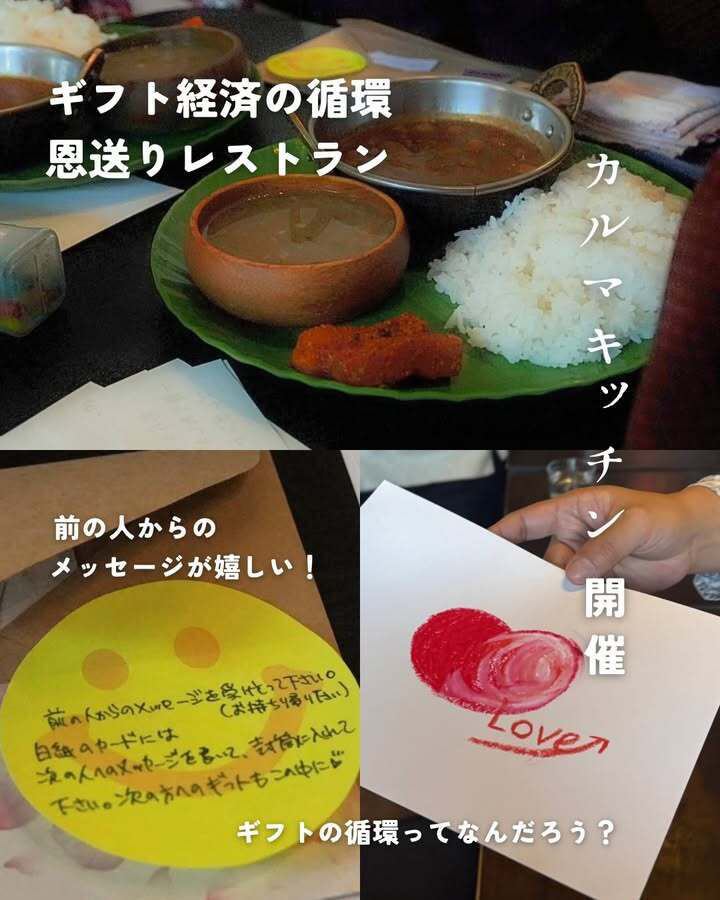 ギフト経済の循環
恩送りレストラン
カルマキッチン開催
前の人からの
メッセージが嬉しい！
前の人からのメッセージを受けとって下さい。
(お持ち帰り下さい)
白紙のカードには
次の人へのメッセージを書いて、封筒に入れて
下さい。次の方へのギフトもこの中に
Love
ギフトの循環ってなんだろう？